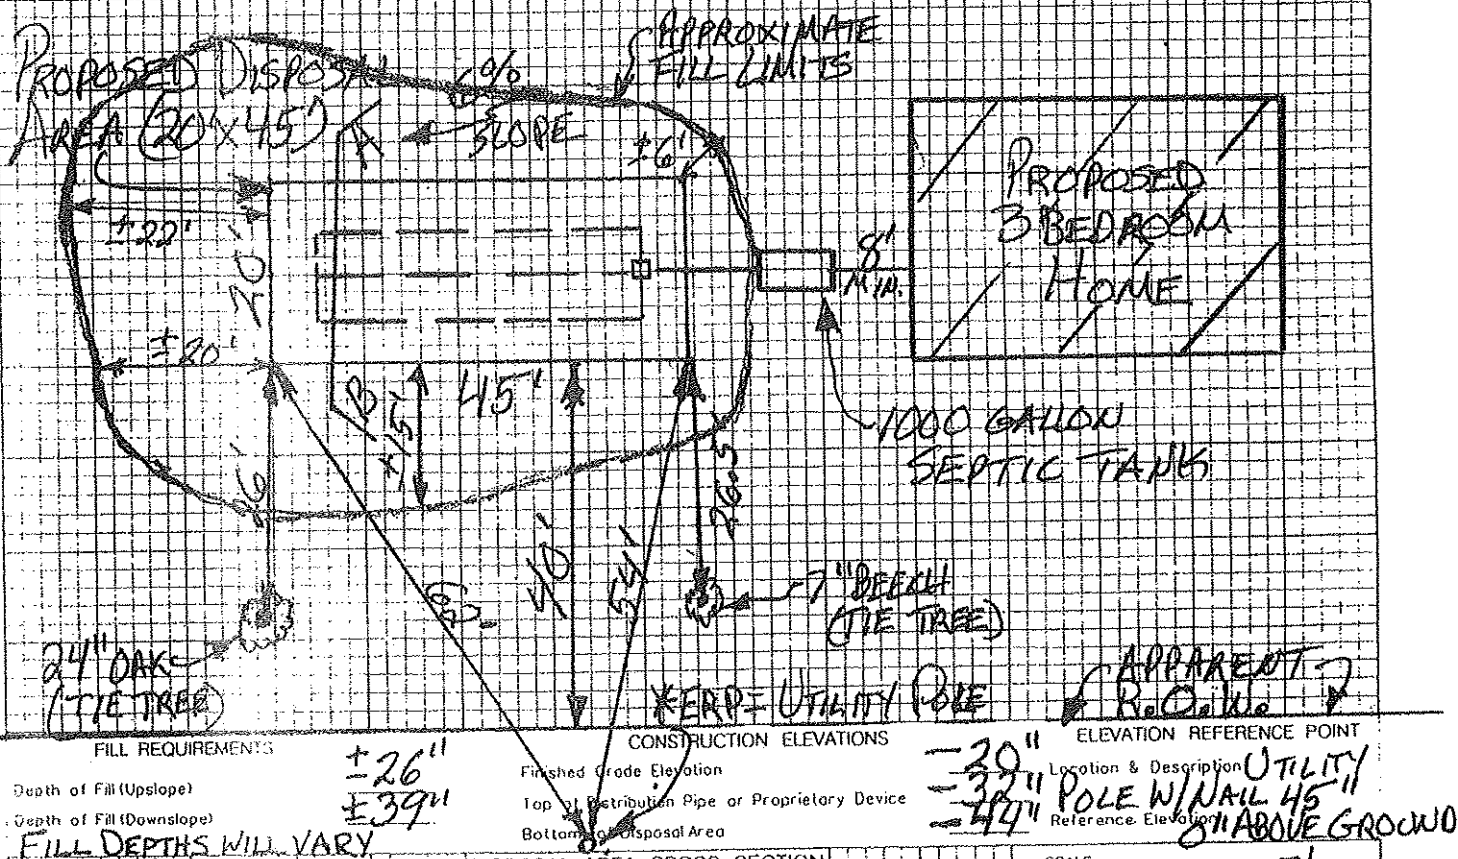 PROPOSED DISPOSAL
AREA (20'x45')
6%
SLOPE
APPROXIMATE
FILL LIMITS
A
±6'
±22'
20'
PROPOSED
3 BEDROOM
HOME
8'
MIN.
±20'
B
±15'
45'
1000 GALLON
SEPTIC TANK
26.5'
40'
54'
7" BEECH
(TIE TREE)
24" OAK
(TIE TREE)
*ERP= UTILITY POLE
APPARENT
R.O.W.
FILL REQUIREMENTS
Depth of Fill (Upslope) ±26"
Depth of Fill (Downslope) ±39"
FILL DEPTHS WILL VARY
CONSTRUCTION ELEVATIONS
Finished Grade Elevation -20"
Top of Distribution Pipe or Proprietary Device -32"
Bottom of Disposal Area -44"
ELEVATION REFERENCE POINT
Location & Description UTILITY
POLE W/NAIL 45"
Reference Elevation 0" ABOVE GROUND